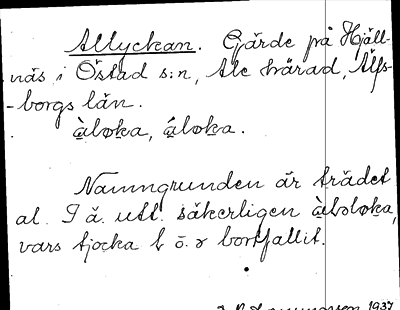 Allyckan. Gärde på Hjäll-
näs i Östad s:n, Ale härad, Älfs-
-borgs län.
àloka, áloka.
Namngrunden är trädet
al. I ä. utt. säkerligen àlsloka,
vars tjocka l o. s bortfallit.
1937